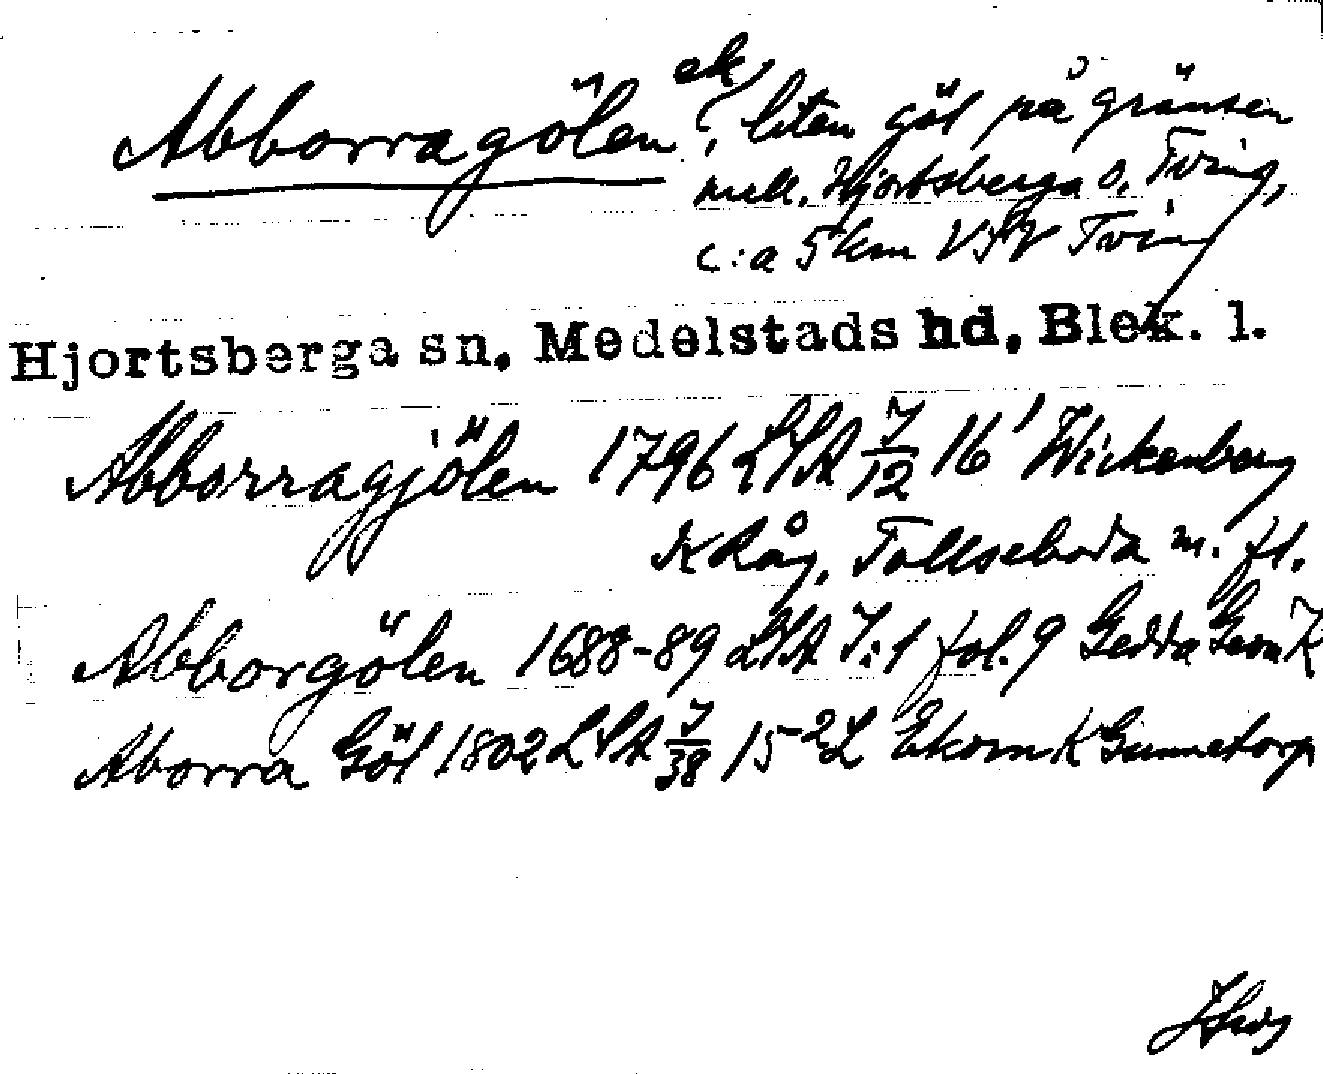 Abborragölen, ek, liten göl på gränsen
mell. Hjortsberga o. Tving,
c:a 5 km VSV Tving
Hjortsberga sn, Medelstads hd, Blek. l.
Abborragjölen 1796 LSA J/12 16¹ Wickenberg
K Råg, Tollseboda m. fl.
Abborgölen 1688-89 LSA J:1 fol. 9 Gedda Geom K
Aborra Göl 1802 LSA J/38 15-2L Ekorn K Gunnetorp